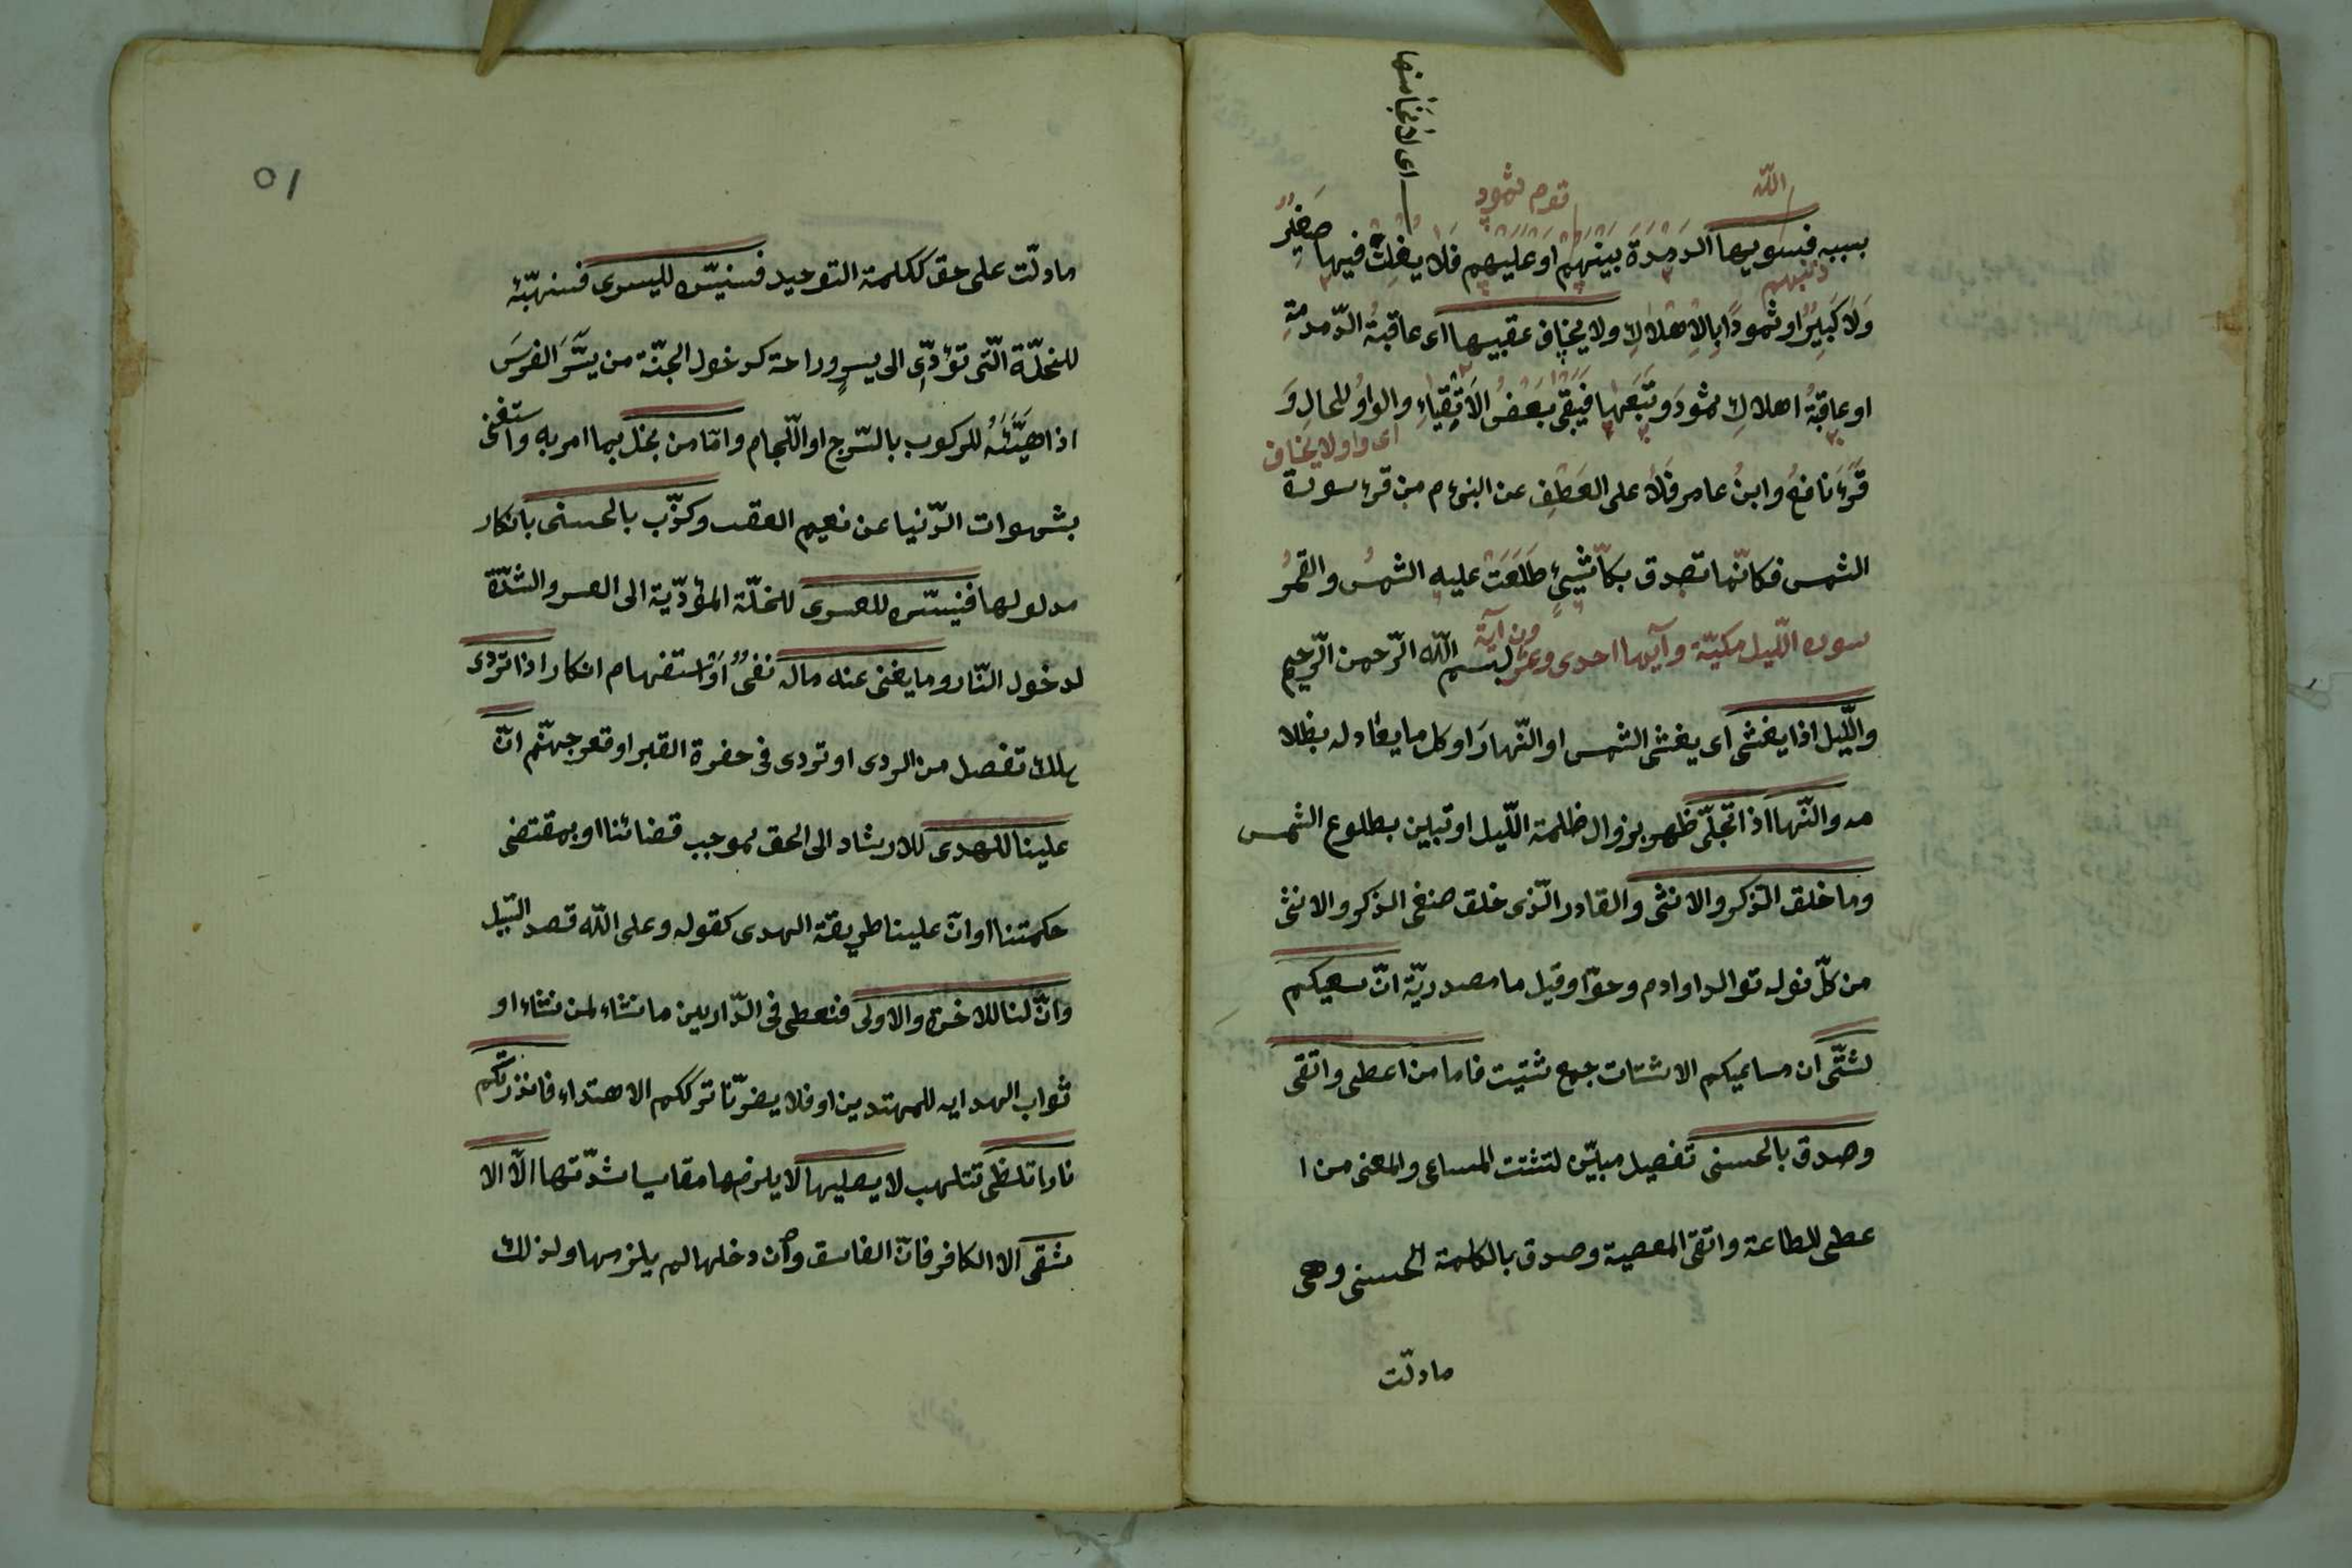 اى لا ينجا منها
الله
قوم ثمود
بسببه فسويها الدمدمة بينهم او عليهم فلا يفلت فيها صغير
ذنبهم
ولا كبير او ثمودا بالاهلاك ولا يخاف عقبيها اى عاقبة الدمدمة
او عاقبة اهلاك ثمود وتبعها فيبقى بعض الابقاء والواو للحال و
اى واو ولا يخاف
قرء نافع وابن عامر فلا على العطف عن النبى م من قرء سورة
الشمس فكانما تصدق بكل شيئ طلعت عليه الشمس والقمر
سورة الليل مكية وآيها احدى وعشرون آية بسم الله الرحمن الرحيم
والليل اذا يغشى اى يغشى الشمس او النهار او كل ما يواريه بظلا
مه والنهار اذا تجلى ظهر بزوال ظلمة الليل او تبين بطلوع الشمس
وما خلق الذكر والانثى والقادر الذى خلق صنفى الذكر والانثى
من كل نوله توالد او ادم وحوا وقيل ما مصدرية ان سعيكم
لشتى ان مساعيكم الاشتات جمع شتيت فاما من اعطى واتقى
وصدق بالحسنى تفصيل مبين لتشتت المساعى والمعنى من ا
عطى للطاعة واتقى المعصية وصدق بالكلمة الحسنى وهى
ما دلت
٥١
ما دلت على حق ككلمة التوحيد فسنيسره لليسرى فسنهيئه
للخلة التى تؤدى الى يسر وراحة كدخول الجنة من يسر الفرس
اذا هيئه للركوب بالسرج او اللجام واما من بخل بما امر به واستغنى
بشهوات الدنيا عن نعيم العقب وكذب بالحسنى بانكار
مدلولها فنيسره للعسرى للخلة المؤدية الى العسر والشدة
لدخول النار وما يغنى عنه ماله نفى او استفهام انكار اذا تردى
هلك تفصل من الردى او تردى فى حفرة القبر او قعر جهنم ان
علينا للهدى للارشاد الى الحق بموجب قضائنا او بمقتضى
حكمتنا او ان علينا طريقة الهدى كقوله وعلى الله قصد السبيل
وان لنا للاخرة والاولى فنعطى فى الدارين ما نشاء لمن نشاء او
ثواب الهدايه للمهتدين او فلا يضرنا ترككم الاهتداء فانذرتكم
نارا تلظى تتلهب لا يصليها لا يلزمها مقاسيا شدتها الا الا
شقى الا الكافر فان الفاسق وان دخلها لم يلزمها ولذلك